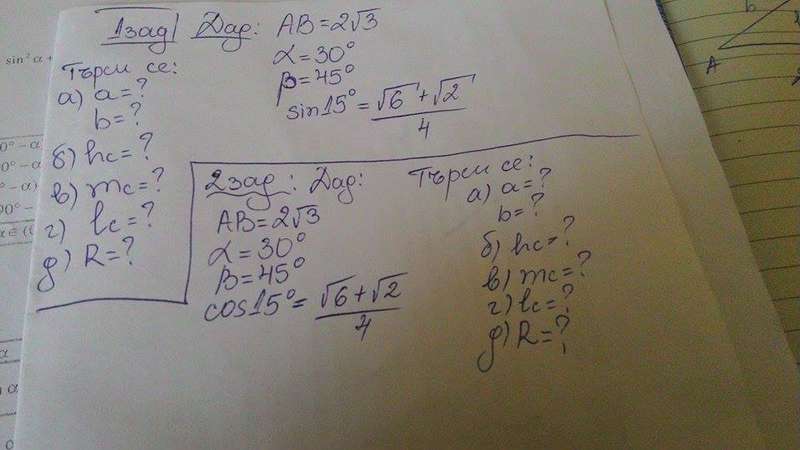 1зад Дад: AB=2√3
α=30°
β=45°
sin15°=(√6+√2)/4
Търси се:
а) a=?
b=?
б) hc=?
в) mc=?
г) lc=?
д) R=?
2зад: Дад:
AB=2√3
α=30°
β=45°
cos15°=(√6+√2)/4
Търси се:
а) a=?
b=?
б) hc=?
в) mc=?
г) lc=?
д) R=?
sin²α+
A
b